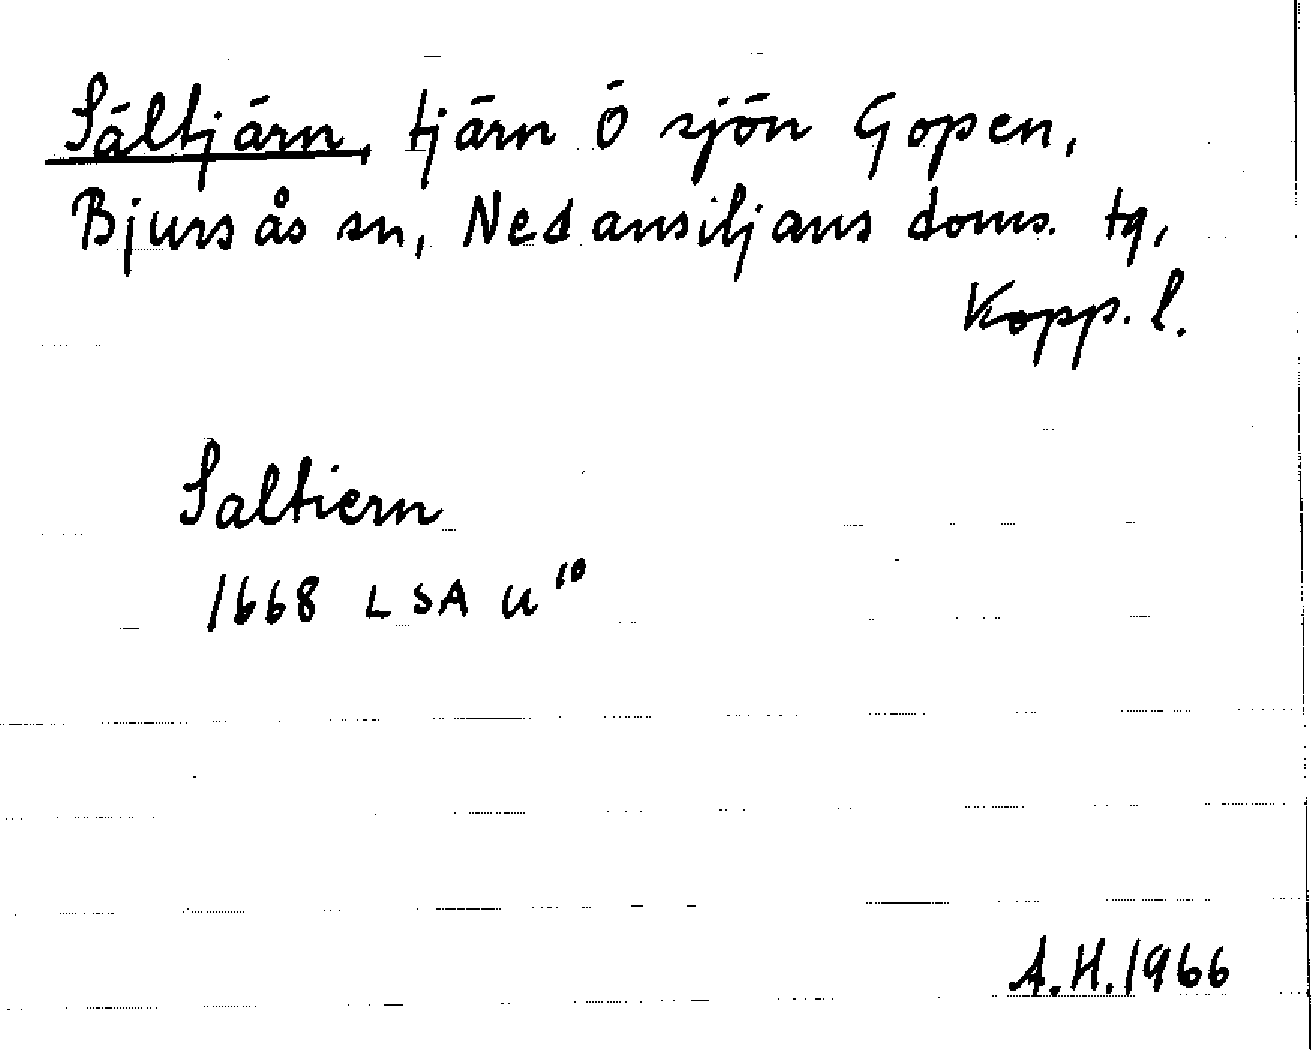 Sältjärn, tjärn Ö sjön Gopen,
Bjursås sn, Nedansiljans doms. tg,
Kopp. l.
Saltiern
1668 LSA U¹⁰
A.H. 1966